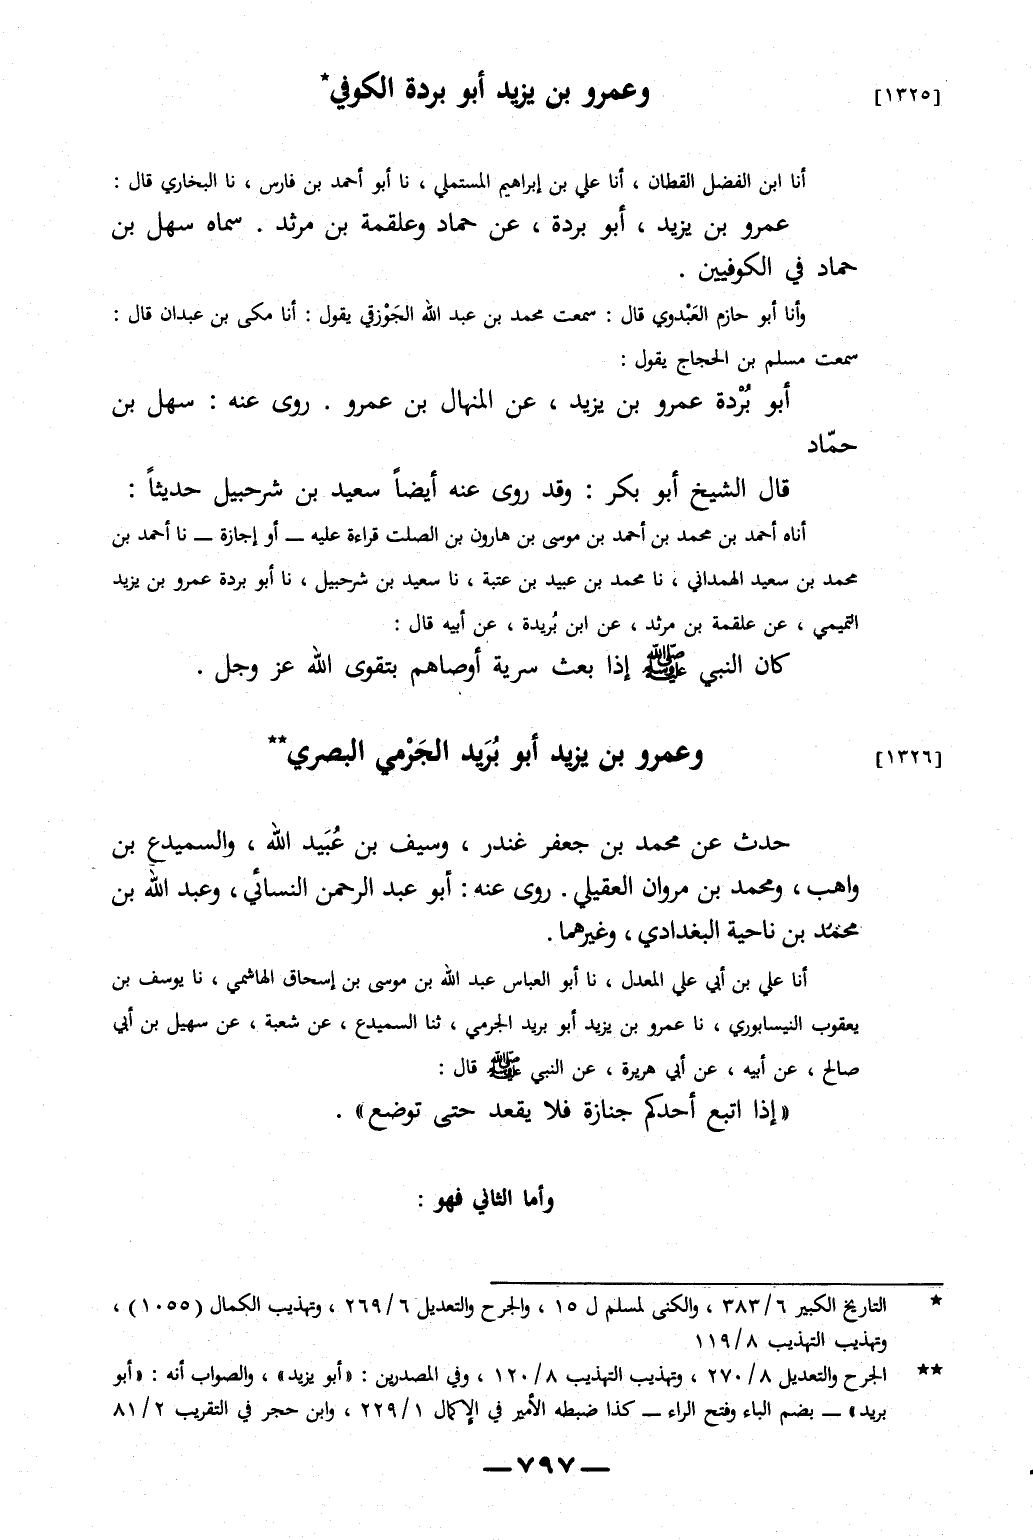 [١٣٢٥] وعمرو بن يزيد أبو بردة الكوفي*
أنا ابن الفضل القطان ، أنا علي بن إبراهيم المستملي ، نا أبو أحمد بن فارس ، نا البخاري قال :
عمرو بن يزيد ، أبو بردة ، عن حماد وعلقمة بن مرثد . سماه سهل بن
حماد في الكوفيين .
وأنا أبو حازم العَبْدوي قال : سمعت محمد بن عبد الله الجَوْزقي يقول : أنا مكى بن عبدان قال :
سمعت مسلم بن الحجاج يقول :
أبو بُرْدة عمرو بن يزيد ، عن المنهال بن عمرو . روى عنه : سهل بن
حمّاد
قال الشيخ أبو بكر : وقد روى عنه أيضاً سعيد بن شرحبيل حديثاً :
أناه أحمد بن محمد بن أحمد بن موسى بن هارون بن الصلت قراءة عليه ــ أو إجازة ــ نا أحمد بن
محمد بن سعيد الهمداني ، نا محمد بن عبيد بن عتبة ، نا سعيد بن شرحبيل ، نا أبو بردة عمرو بن يزيد
التميمي ، عن علقمة بن مرثد ، عن ابن بُريدة ، عن أبيه قال :
كان النبي ﷺ إذا بعث سرية أوصاهم بتقوى الله عز وجل .
[١٣٢٦] وعمرو بن يزيد أبو بُرَيد الجَرْمي البصري**
حدث عن محمد بن جعفر غندر ، وسيف بن عُبَيد الله ، والسميدع بن
واهب ، ومحمد بن مروان العقيلي . روى عنه : أبو عبد الرحمن النسائي ، وعبد الله بن
محمد بن ناحية البغدادي ، وغيرهما .
أنا علي بن أبي علي المعدل ، نا أبو العباس عبد الله بن موسى بن إسحاق الهاشمي ، نا يوسف بن
يعقوب النيسابوري ، نا عمرو بن يزيد أبو بريد الجرمي ، ثنا السميدع ، عن شعبة ، عن سهيل بن أبي
صالح ، عن أبيه ، عن أبي هريرة ، عن النبي ﷺ قال :
« إذا اتبع أحدكم جنازة فلا يقعد حتى توضع » .
وأما الثاني فهو :
* التاريخ الكبير ٦/ ٣٨٣ ، والكنى لمسلم ل ١٥ ، والجرح والتعديل ٦/ ٢٦٩ ، وتهذيب الكمال (١٠٥٥) ،
وتهذيب التهذيب ٨/ ١١٩
** الجرح والتعديل ٨/ ٢٧٠ ، وتهذيب التهذيب ٨/ ١٢٠ ، وفي المصدرين : «أبو يزيد» ، والصواب أنه : «أبو
بريد» ــ بضم الباء وفتح الراء ــ كذا ضبطه الأمير في الإكمال ١/ ٢٢٩ ، وابن حجر في التقريب ٢/ ٨١
ــ ٧٩٧ ــ